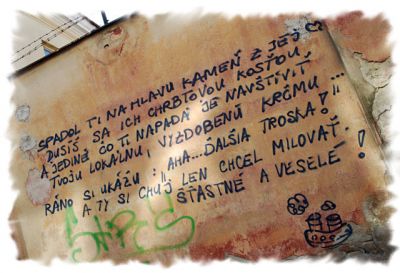 SPADOL TI NA HLAVU KAMEŇ Z JEJ
DUSÍŠ SA ICH CHRBTOVOU KOSŤOU,
A JEDINÉ, ČO TI NAPADÁ JE NAVŠTÍVIŤ
TVOJU LOKÁLNU, VYZDOBENÚ KRČMU...
RÁNO SI UKÁŽU: "AHA...ĎALŠIA TROSKA!"
A TY SI CHCEL LEN MILOVAŤ
ŠŤASTNÉ A VESELÉ!